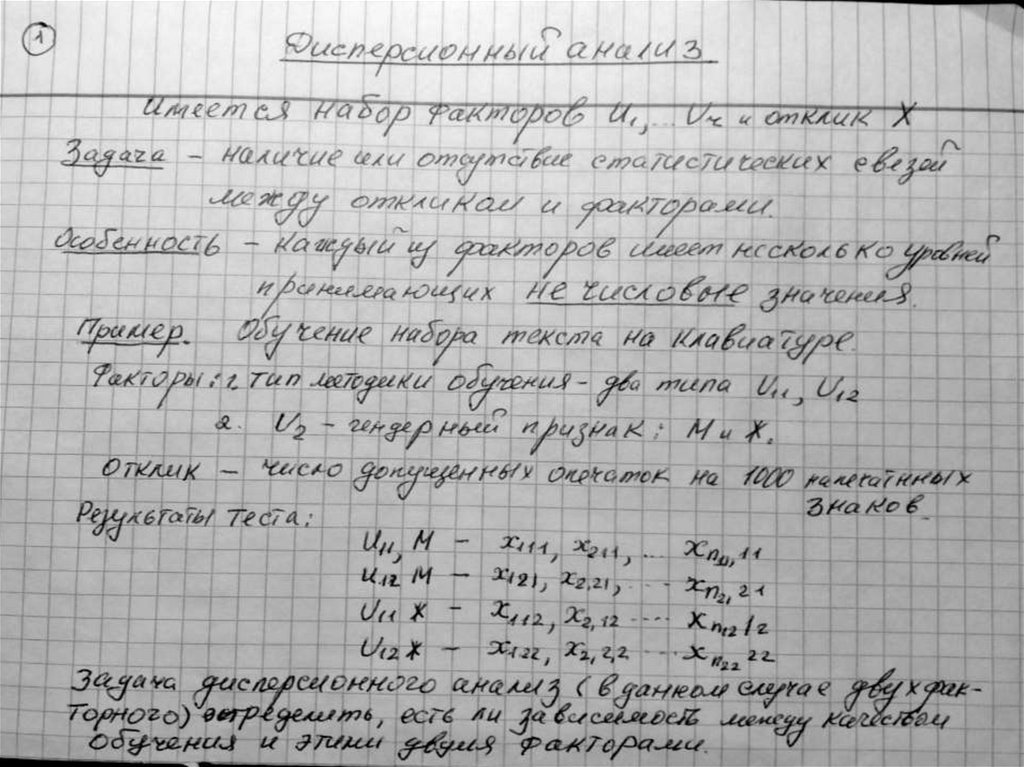 1
Дисперсионный анализ
Имеется набор факторов U₁,... U₂ и отклик X
Задача – наличие или отсутствие статистических связей
между откликом и факторами.
Особенность – каждый из факторов имеет несколько уровней
принимающих не числовые значения.
Пример. Обучение набора текста на клавиатуре.
Факторы: 1 тип методики обучения – два типа U₁₁, U₁₂
2. U₂ – гендерный признак: М и Ж.
Отклик – число допущенных опечаток на 1000 напечатнных
знаков.
Результаты теста:
U₁₁, М – x₁₁₁, x₂₁₁, ... xₙ₁₁,₁₁
U₁₂ М – x₁₂₁, x₂,₂₁, ... xₙ₂,₂₁
U₁₁ Ж – x₁₁₂, x₂,₁₂ .... xₙ₁₂₁₂
U₁₂ Ж – x₁₂₂, x₂,₂,₂ ... xₙ₂₂₂₂
Задача дисперсионного анализ (в данном случае двухфак-
торного) определить, есть ли зависимость между качеством
обучения и этими двумя факторами.